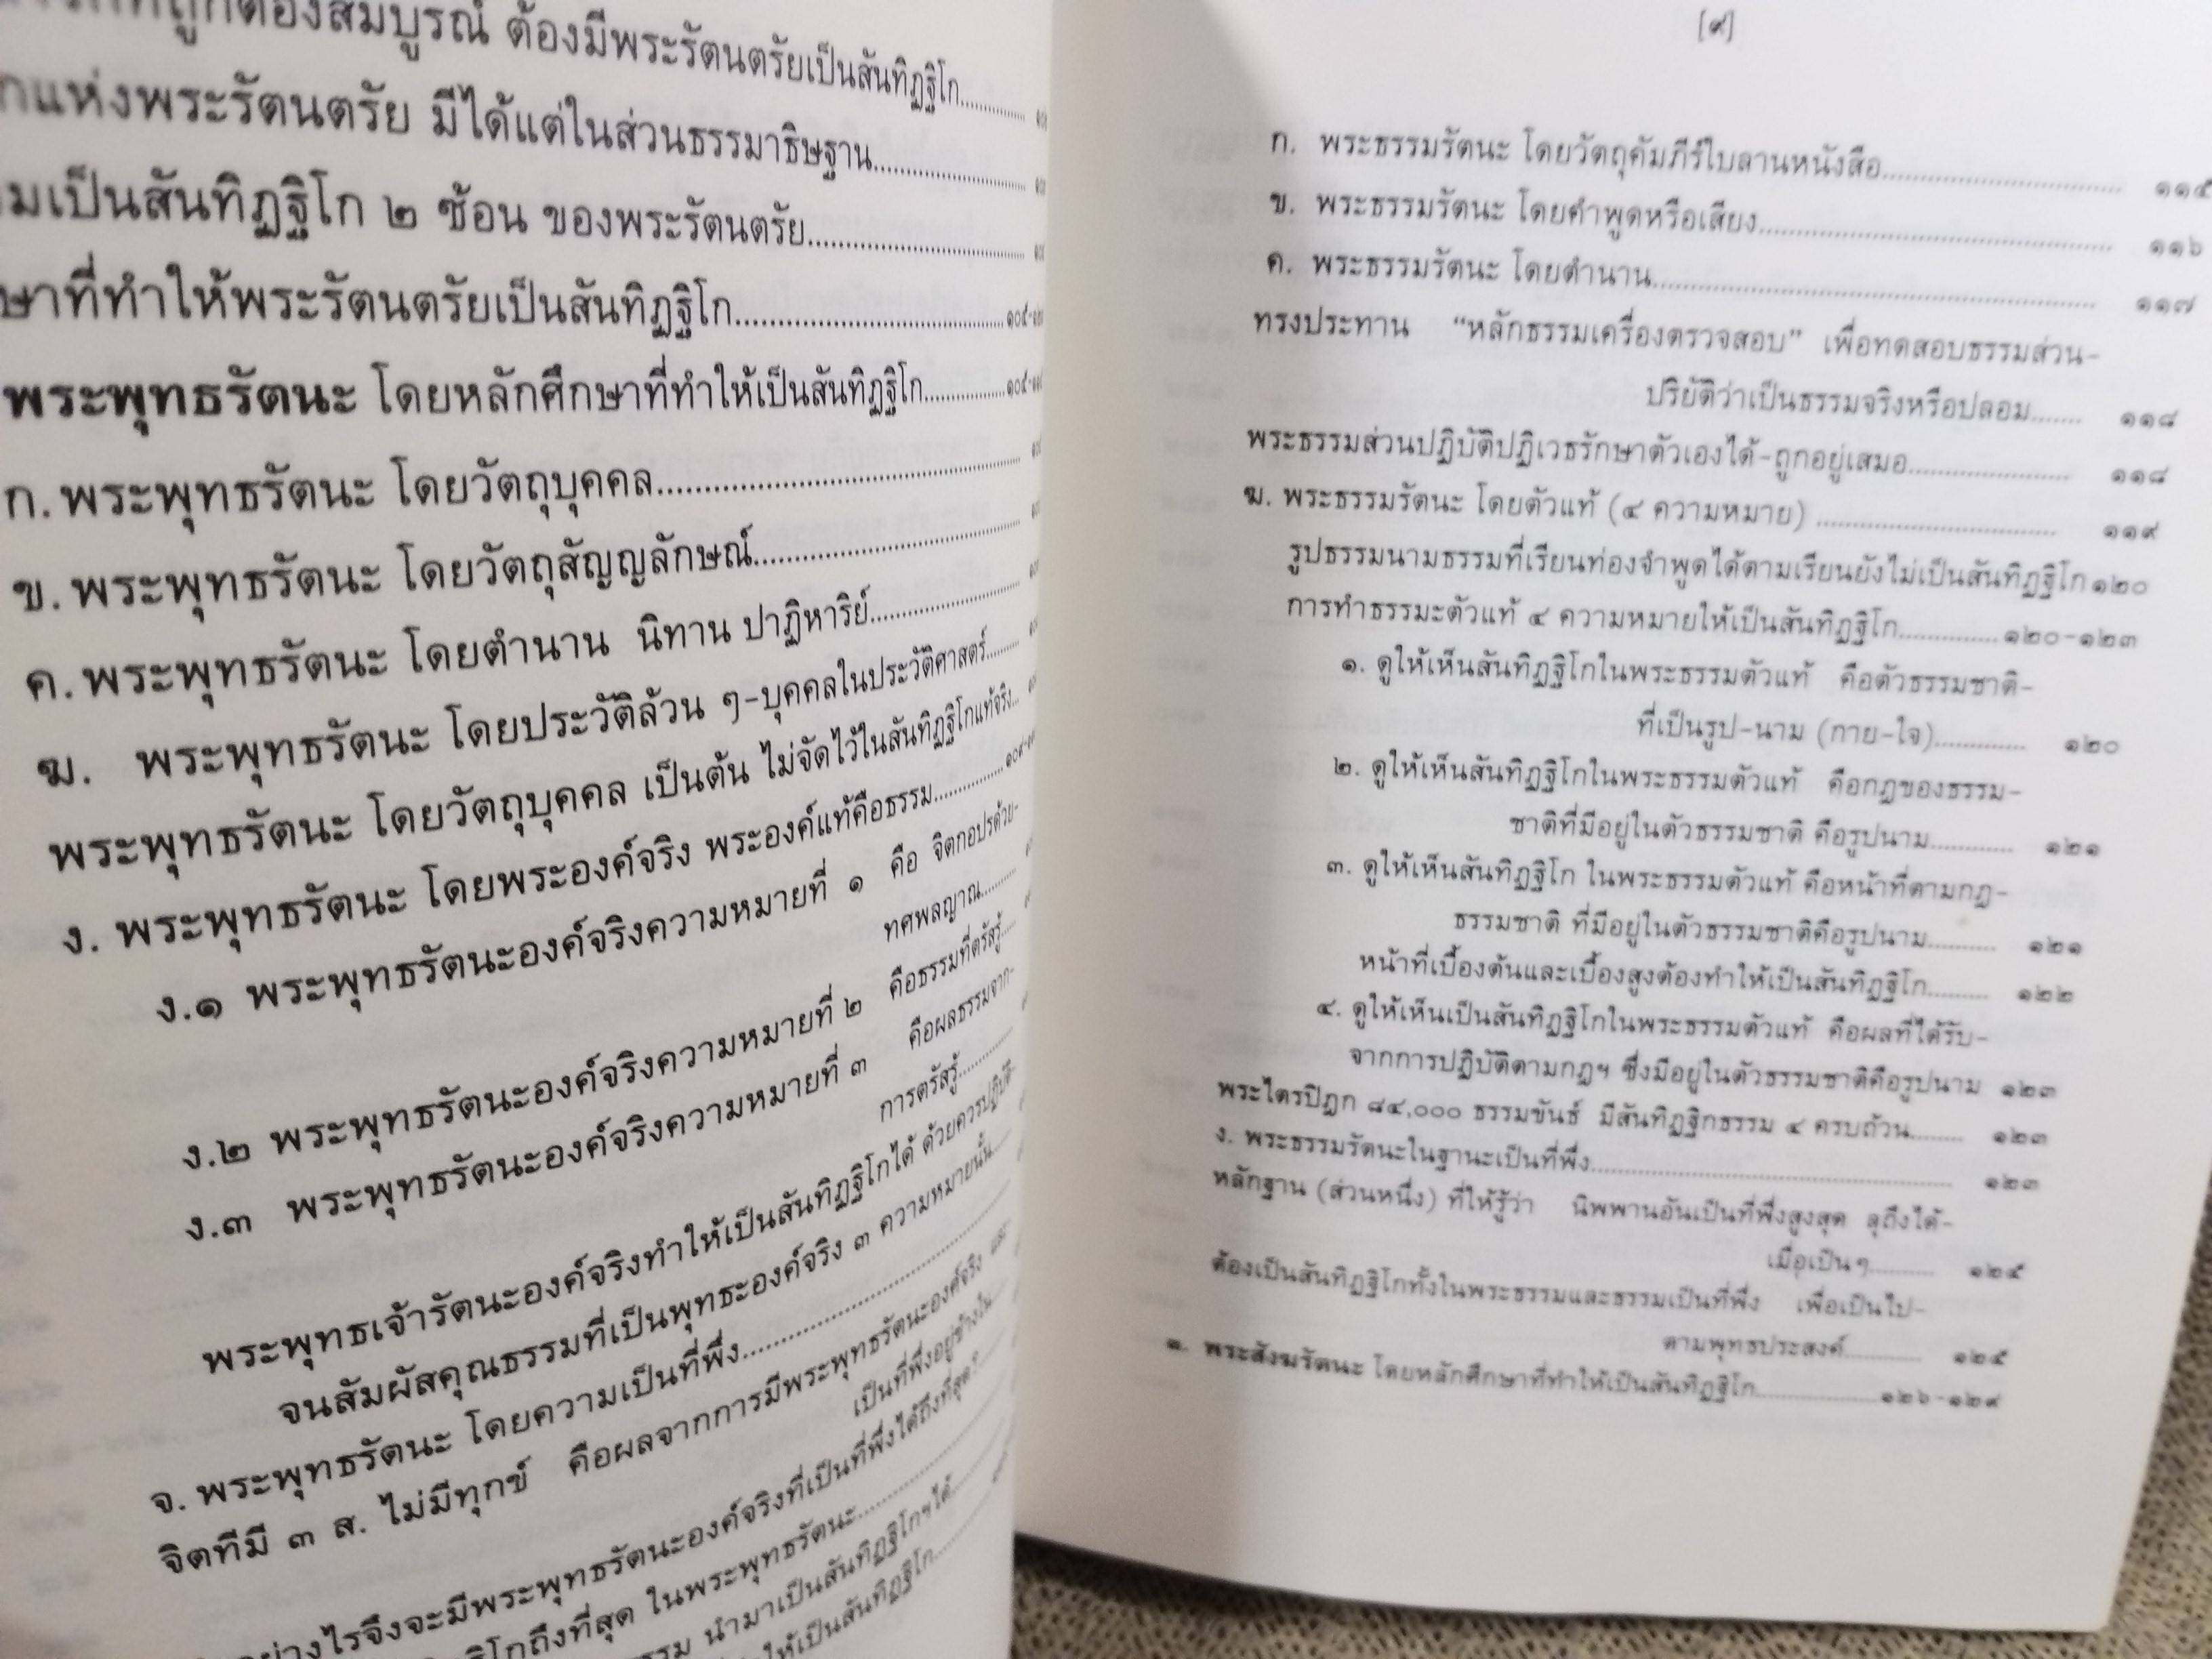 ที่ถูกต้องสมบูรณ์ ต้องมีพระรัตนตรัยเป็นสันทิฏฐิโก
แห่งพระรัตนตรัย มีได้แต่ในส่วนธรรมาธิษฐาน
เป็นสันทิฏฐิโก ๒ ซ้อน ของพระรัตนตรัย
ที่ทำให้พระรัตนตรัยเป็นสันทิฏฐิโก
พระพุทธรัตนะ โดยหลักศึกษาที่ทำให้เป็นสันทิฏฐิโก
ก. พระพุทธรัตนะ โดยวัตถุบุคคล
ข. พระพุทธรัตนะ โดยวัตถุสัญญลักษณ์
ค. พระพุทธรัตนะ โดยตำนาน นิทาน ปาฏิหาริย์
ฆ. พระพุทธรัตนะ โดยประวัติล้วน ๆ-บุคคลในประวัติศาสตร์
พระพุทธรัตนะ โดยวัตถุบุคคล เป็นต้น ไม่จัดไว้ในสันทิฏฐิโกแท้จริง
ง. พระพุทธรัตนะ โดยพระองค์จริง พระองค์แท้คือธรรม
ง.๑ พระพุทธรัตนะองค์จริงความหมายที่ ๑ คือ จิตกอปรด้วย-
ทศพลญาณ
ง.๒ พระพุทธรัตนะองค์จริงความหมายที่ ๒ คือธรรมที่ตรัสรู้
ง.๓ พระพุทธรัตนะองค์จริงความหมายที่ ๓ คือผลธรรมจาก-
การตรัสรู้
พระพุทธเจ้ารัตนะองค์จริงทำให้เป็นสันทิฏฐิโกได้ ด้วยควรปฏิบัติ-
จนสัมผัสคุณธรรมที่เป็นพุทธะองค์จริง ๓ ความหมายนั้น
จ. พระพุทธรัตนะ โดยความเป็นที่พึ่ง
จิตที่มี ๓ ส. ไม่มีทุกข์ คือผลจากการมีพระพุทธรัตนะองค์จริง และ
เป็นที่พึ่งอยู่ข้างใน
อย่างไรจึงจะมีพระพุทธรัตนะองค์จริงที่เป็นที่พึ่งได้ถึงที่สุด?
ถึงที่สุด ในพระพุทธรัตนะ
นำมาเป็นสันทิฏฐิโกฯได้
ให้เป็นสันทิฏฐิโก
[๙]
ก. พระธรรมรัตนะ โดยวัตถุคัมภีร์ใบลานหนังสือ ๑๑๕
ข. พระธรรมรัตนะ โดยคำพูดหรือเสียง ๑๑๖
ค. พระธรรมรัตนะ โดยตำนาน ๑๑๗
ทรงประทาน “หลักธรรมเครื่องตรวจสอบ” เพื่อทดสอบธรรมส่วน-
ปริยัติว่าเป็นธรรมจริงหรือปลอม ๑๑๘
พระธรรมส่วนปฏิบัติปฏิเวธรักษาตัวเองได้-ถูกอยู่เสมอ ๑๑๘
ฆ. พระธรรมรัตนะ โดยตัวแท้ (๔ ความหมาย) ๑๑๙
รูปธรรมนามธรรมที่เรียนท่องจำพูดได้ตามเรียนยังไม่เป็นสันทิฏฐิโก ๑๒๐
การทำธรรมะตัวแท้ ๔ ความหมายให้เป็นสันทิฏฐิโก ๑๒๐-๑๒๓
๑. ดูให้เห็นสันทิฏฐิโกในพระธรรมตัวแท้ คือตัวธรรมชาติ-
ที่เป็นรูป-นาม (กาย-ใจ) ๑๒๐
๒. ดูให้เห็นสันทิฏฐิโกในพระธรรมตัวแท้ คือกฎของธรรม-
ชาติที่มีอยู่ในตัวธรรมชาติ คือรูปนาม ๑๒๑
๓. ดูให้เห็นสันทิฏฐิโก ในพระธรรมตัวแท้ คือหน้าที่ตามกฎ-
ธรรมชาติ ที่มีอยู่ในตัวธรรมชาติคือรูปนาม ๑๒๑
หน้าที่เบื้องต้นและเบื้องสูงต้องทำให้เป็นสันทิฏฐิโก ๑๒๒
๔. ดูให้เห็นเป็นสันทิฏฐิโกในพระธรรมตัวแท้ คือผลที่ได้รับ-
จากการปฏิบัติตามกฎฯ ซึ่งมีอยู่ในตัวธรรมชาติคือรูปนาม ๑๒๓
พระไตรปิฎก ๘๔,๐๐๐ ธรรมขันธ์ มีสันทิฏฐิกธรรม ๔ ครบถ้วน ๑๒๓
ง. พระธรรมรัตนะในฐานะเป็นที่พึ่ง ๑๒๓
หลักฐาน (ส่วนหนึ่ง) ที่ให้รู้ว่า นิพพานอันเป็นที่พึ่งสูงสุด ลุถึงได้-
เมื่อเป็นๆ ๑๒๕
ต้องเป็นสันทิฏฐิโกทั้งในพระธรรมและธรรมเป็นที่พึ่ง เพื่อเป็นไป-
ตามพุทธประสงค์ ๑๒๕
พระสังฆรัตนะ โดยหลักศึกษาที่ทำให้เป็นสันทิฏฐิโก ๑๒๖-๑๒๙